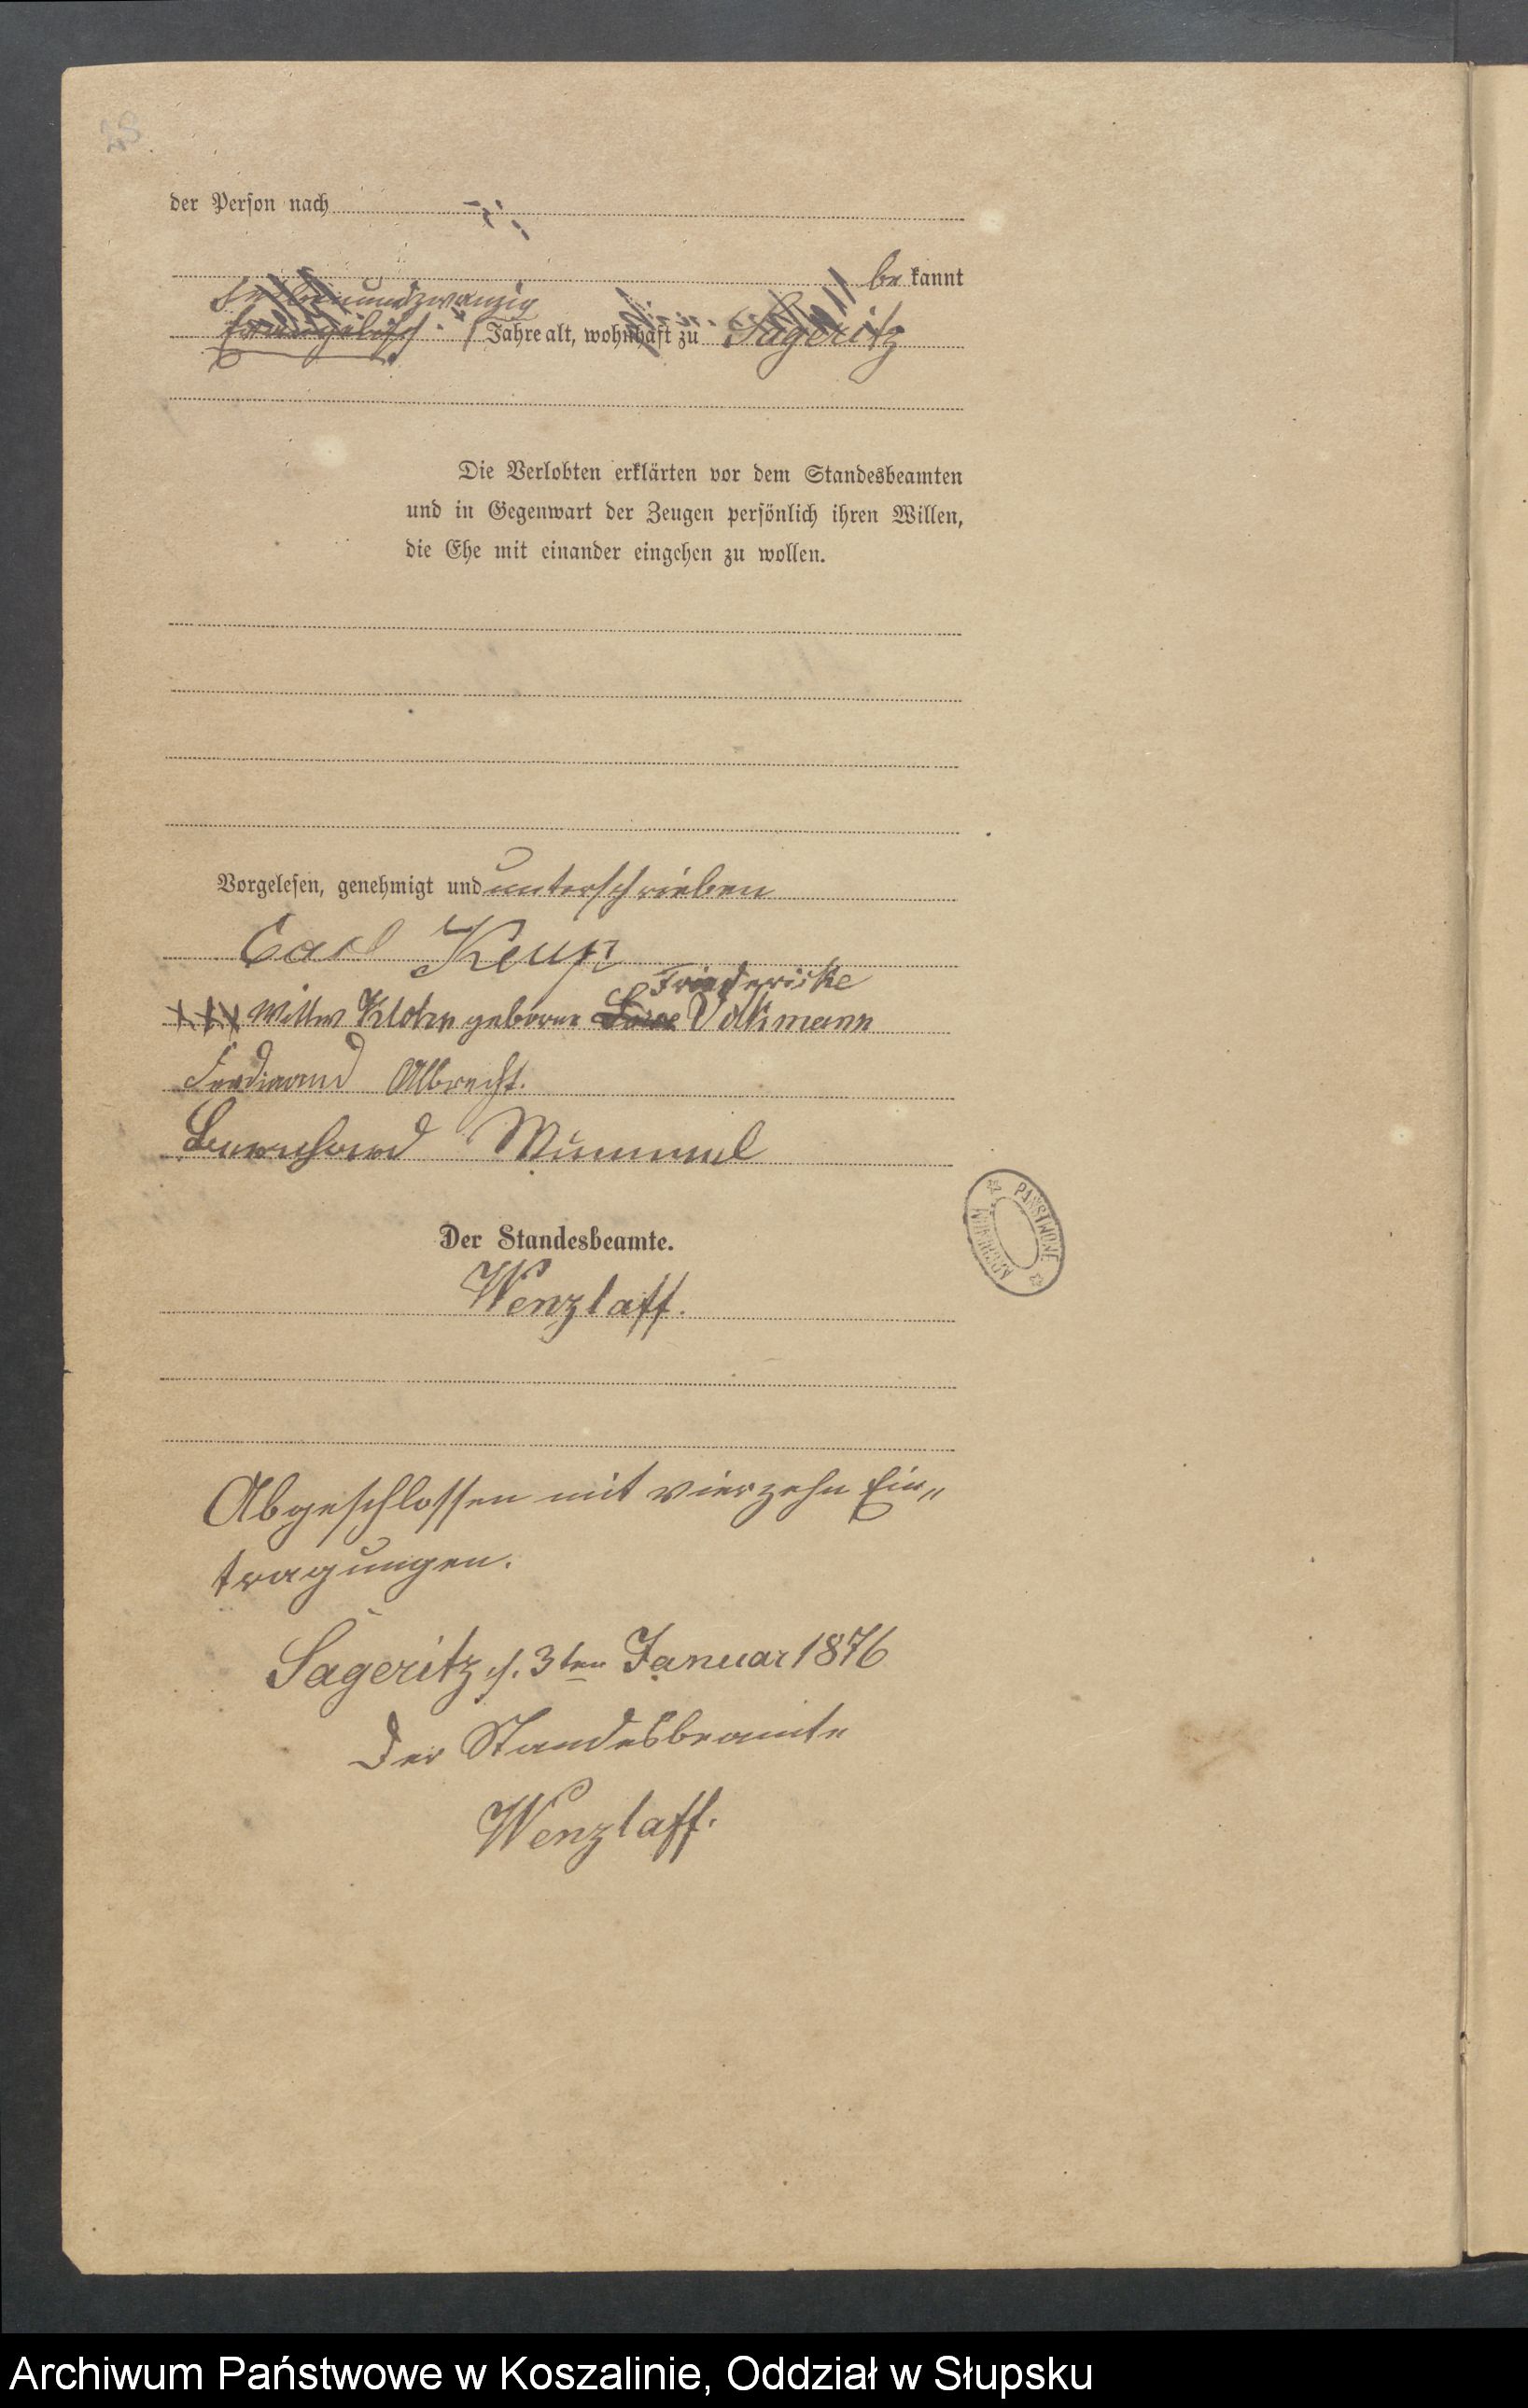 28
der Person nach
be kannt
siebenundzwanzig
Evangelisch. Jahre alt, wohnhaft zu Sageritz
Die Verlobten erklärten vor dem Standesbeamten
und in Gegenwart der Zeugen persönlich ihren Willen,
die Ehe mit einander eingehen zu wollen.
Vorgelesen, genehmigt und unterschrieben
Carl Keup
Friedericke
+++ Wittwe Klohn geborne Volkmann
Ferdinand Albrecht.
Bernhard Mummel
Der Standesbeamte.
Wenzlaff.
Abgeschlossen mit vierzehn Ein„
tragungen.
Sageritz d. 3ten Januar 1876
Der Standesbeamte
Wenzlaff.
ARCHIWUM PAŃSTWOWE
Archiwum Państwowe w Koszalinie, Oddział w Słupsku